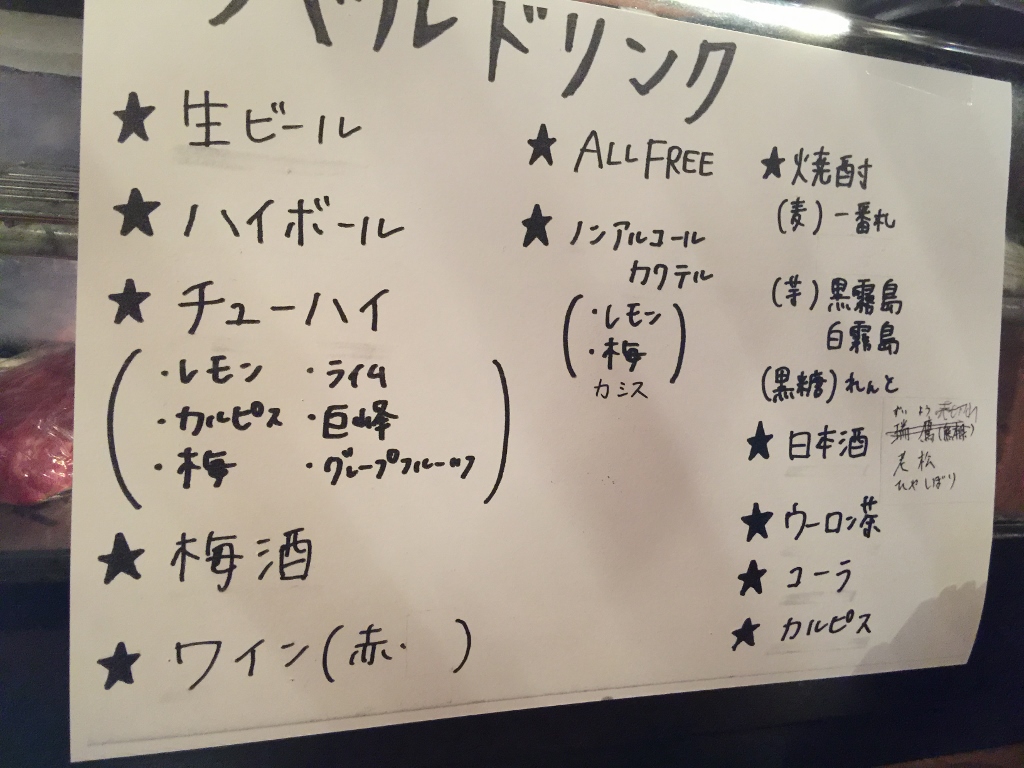 バルドリンク
★ 生ビール
★ ハイボール
★ チューハイ
(・レモン ・ライム
・カルピス ・巨峰
・梅 ・グレープフルーツ)
★ 梅酒
★ ワイン(赤・ )
★ ALL FREE
★ ノンアルコール
カクテル
(・レモン
・梅)
カシス
★ 焼酎
(麦) 一番札
(芋) 黒霧島
白霧島
(黒糖) れんと
★ 日本酒
老松
ひやしぼり
★ ウーロン茶
★ コーラ
★ カルピス